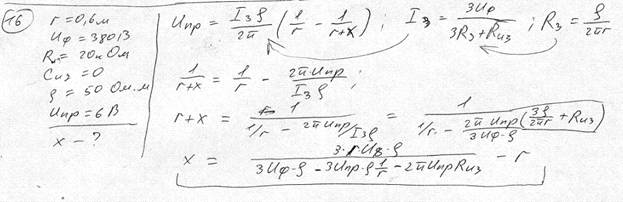 16
r = 0,6 м
Uф = 380 В
Rиз = 20 кОм
Cиз = 0
ρ = 50 Ом·м
Uпр = 6 В
x - ?
Uпр = Iз ρ / 2π (1/r - 1/(r+x)) ; Iз = 3Uφ / (3Rз + Rиз) ; Rз = ρ / 2πr
1/(r+x) = 1/r - 2π Uпр / Iз ρ ;
r+x = 1 / (1/r - 2π Uпр / Iз ρ) = 1 / (1/r - 2π Uпр / (3Uф·ρ) (3ρ / 2πr + Rиз))
x = 3·Uф·ρ / (3Uф·ρ - 3Uпр·ρ 1/r - 2π Uпр Rиз) - r